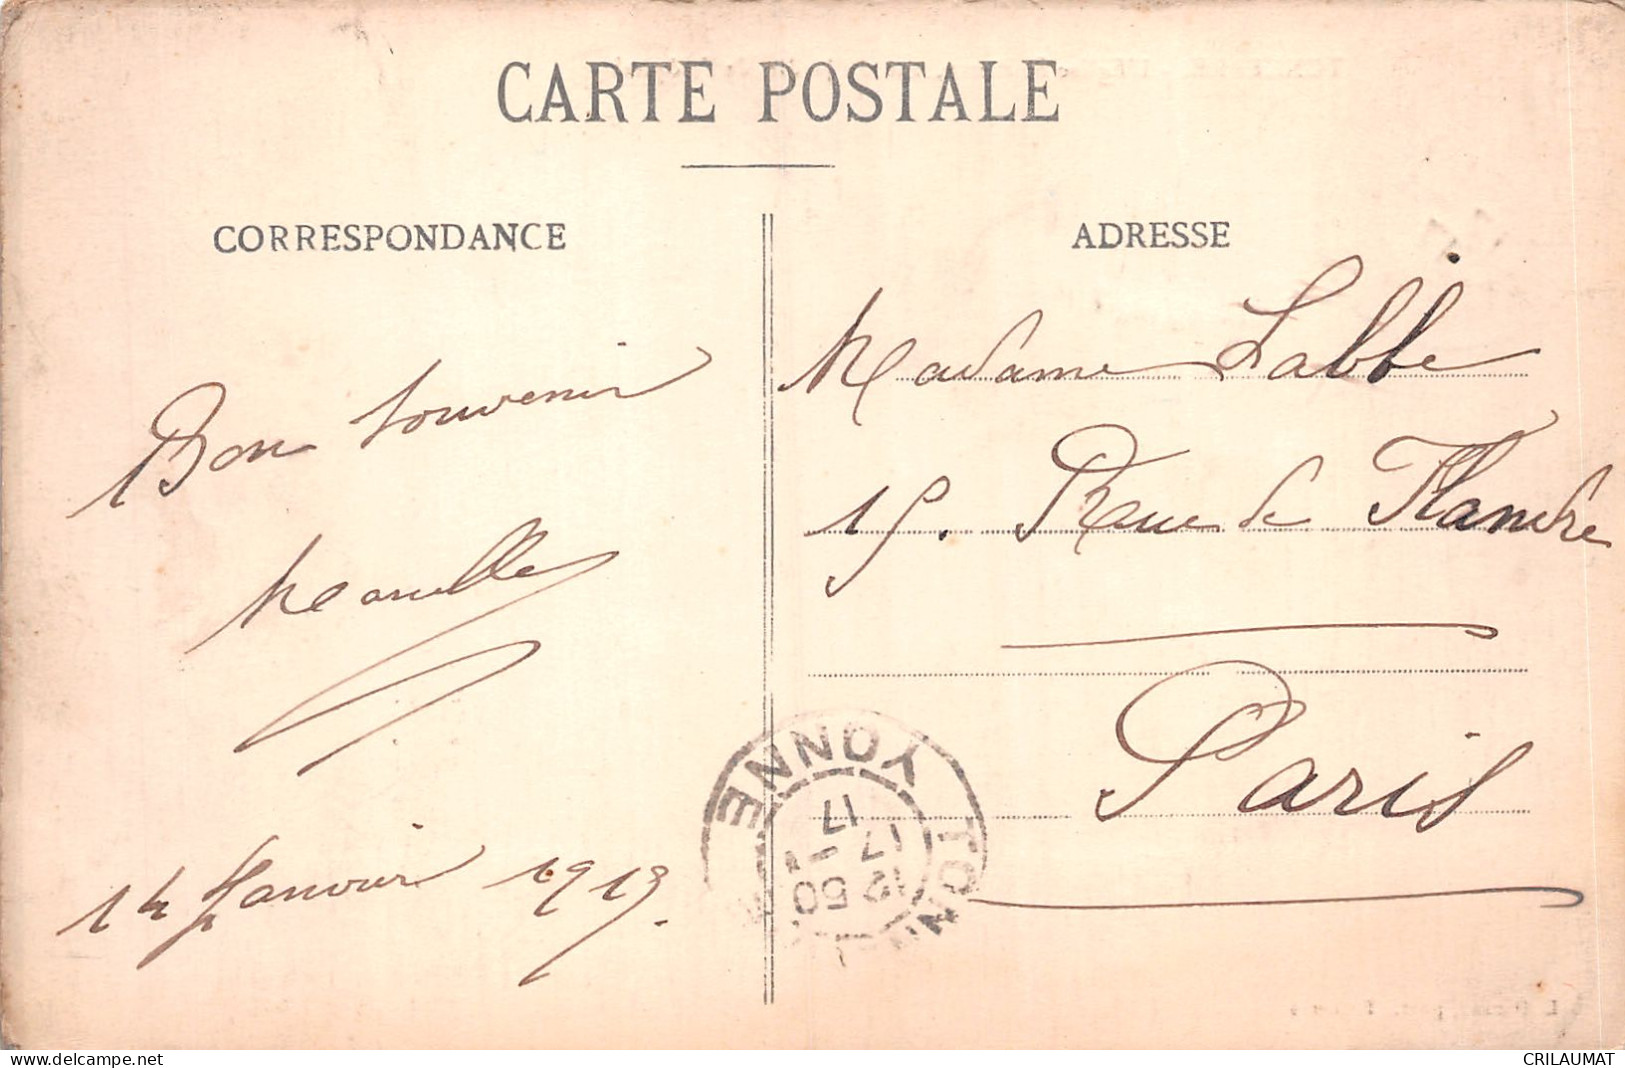 CARTE POSTALE
CORRESPONDANCE
ADRESSE
Bon souvenir
Marcelle
14 Janvier 1919.
Madame Labbe
15. Rue de Flandre
Paris
YONNE
17
17 - 1
12 50
www.delcampe.net
CRILAUMAT